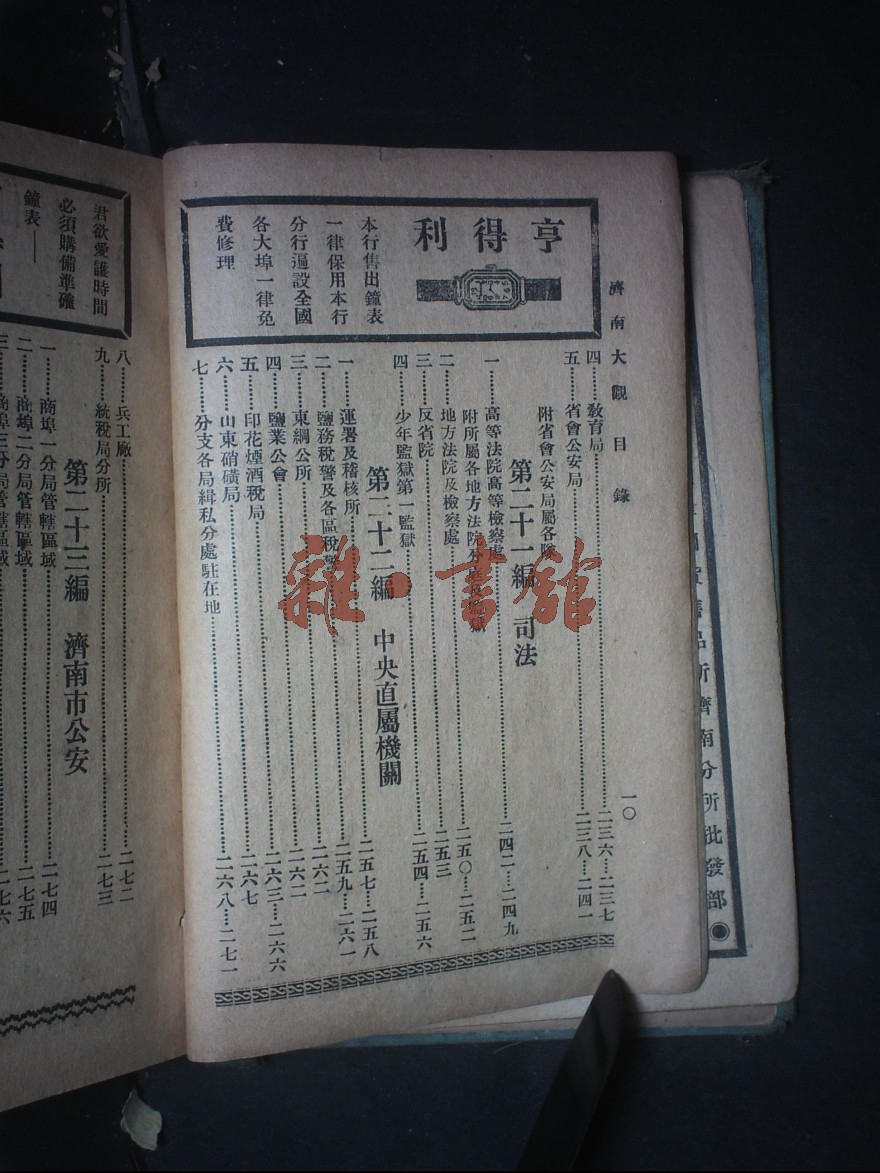 濟南大觀目錄
一〇
亨得利
本行售出鐘表
一律保用本行
分行遍設全國
各大埠一律免
費修理
四………教育局………二三六…二三七
五………省會公安局………二三八…二四一
附省會公安局屬各隊
第二十一編 司法
一………高等法院高等檢察處………二四二…二四九
附所屬各地方法院………二五〇…二五二
二………地方法院及檢察處………二五三
三………反省院………二五四…二五六
四………少年監獄第一監獄
第二十二編 中央直屬機關
一………運署及稽核所………二五七…二五八
二………鹽務稅警及各區稅警………二五九…二六一
三………東綱公所………二六二
四………鹽業公會………二六二
五………印花煙酒稅局………二六三…二六六
六………山東硝磺局………二六七
七………分支各局緝私分處駐在地………二六八…二七一
君欲愛護時間
必須購備準確
鐘表—
八………兵工廠………二七二
九………統稅局分所………二七三
第二十三編 濟南市公安
一………商埠一分局管轄區域………二七四
二………商埠二分局管轄區域………二七五
三………商埠三分局管轄區域………二七六
售品所濟南分所批發部
雜·書館